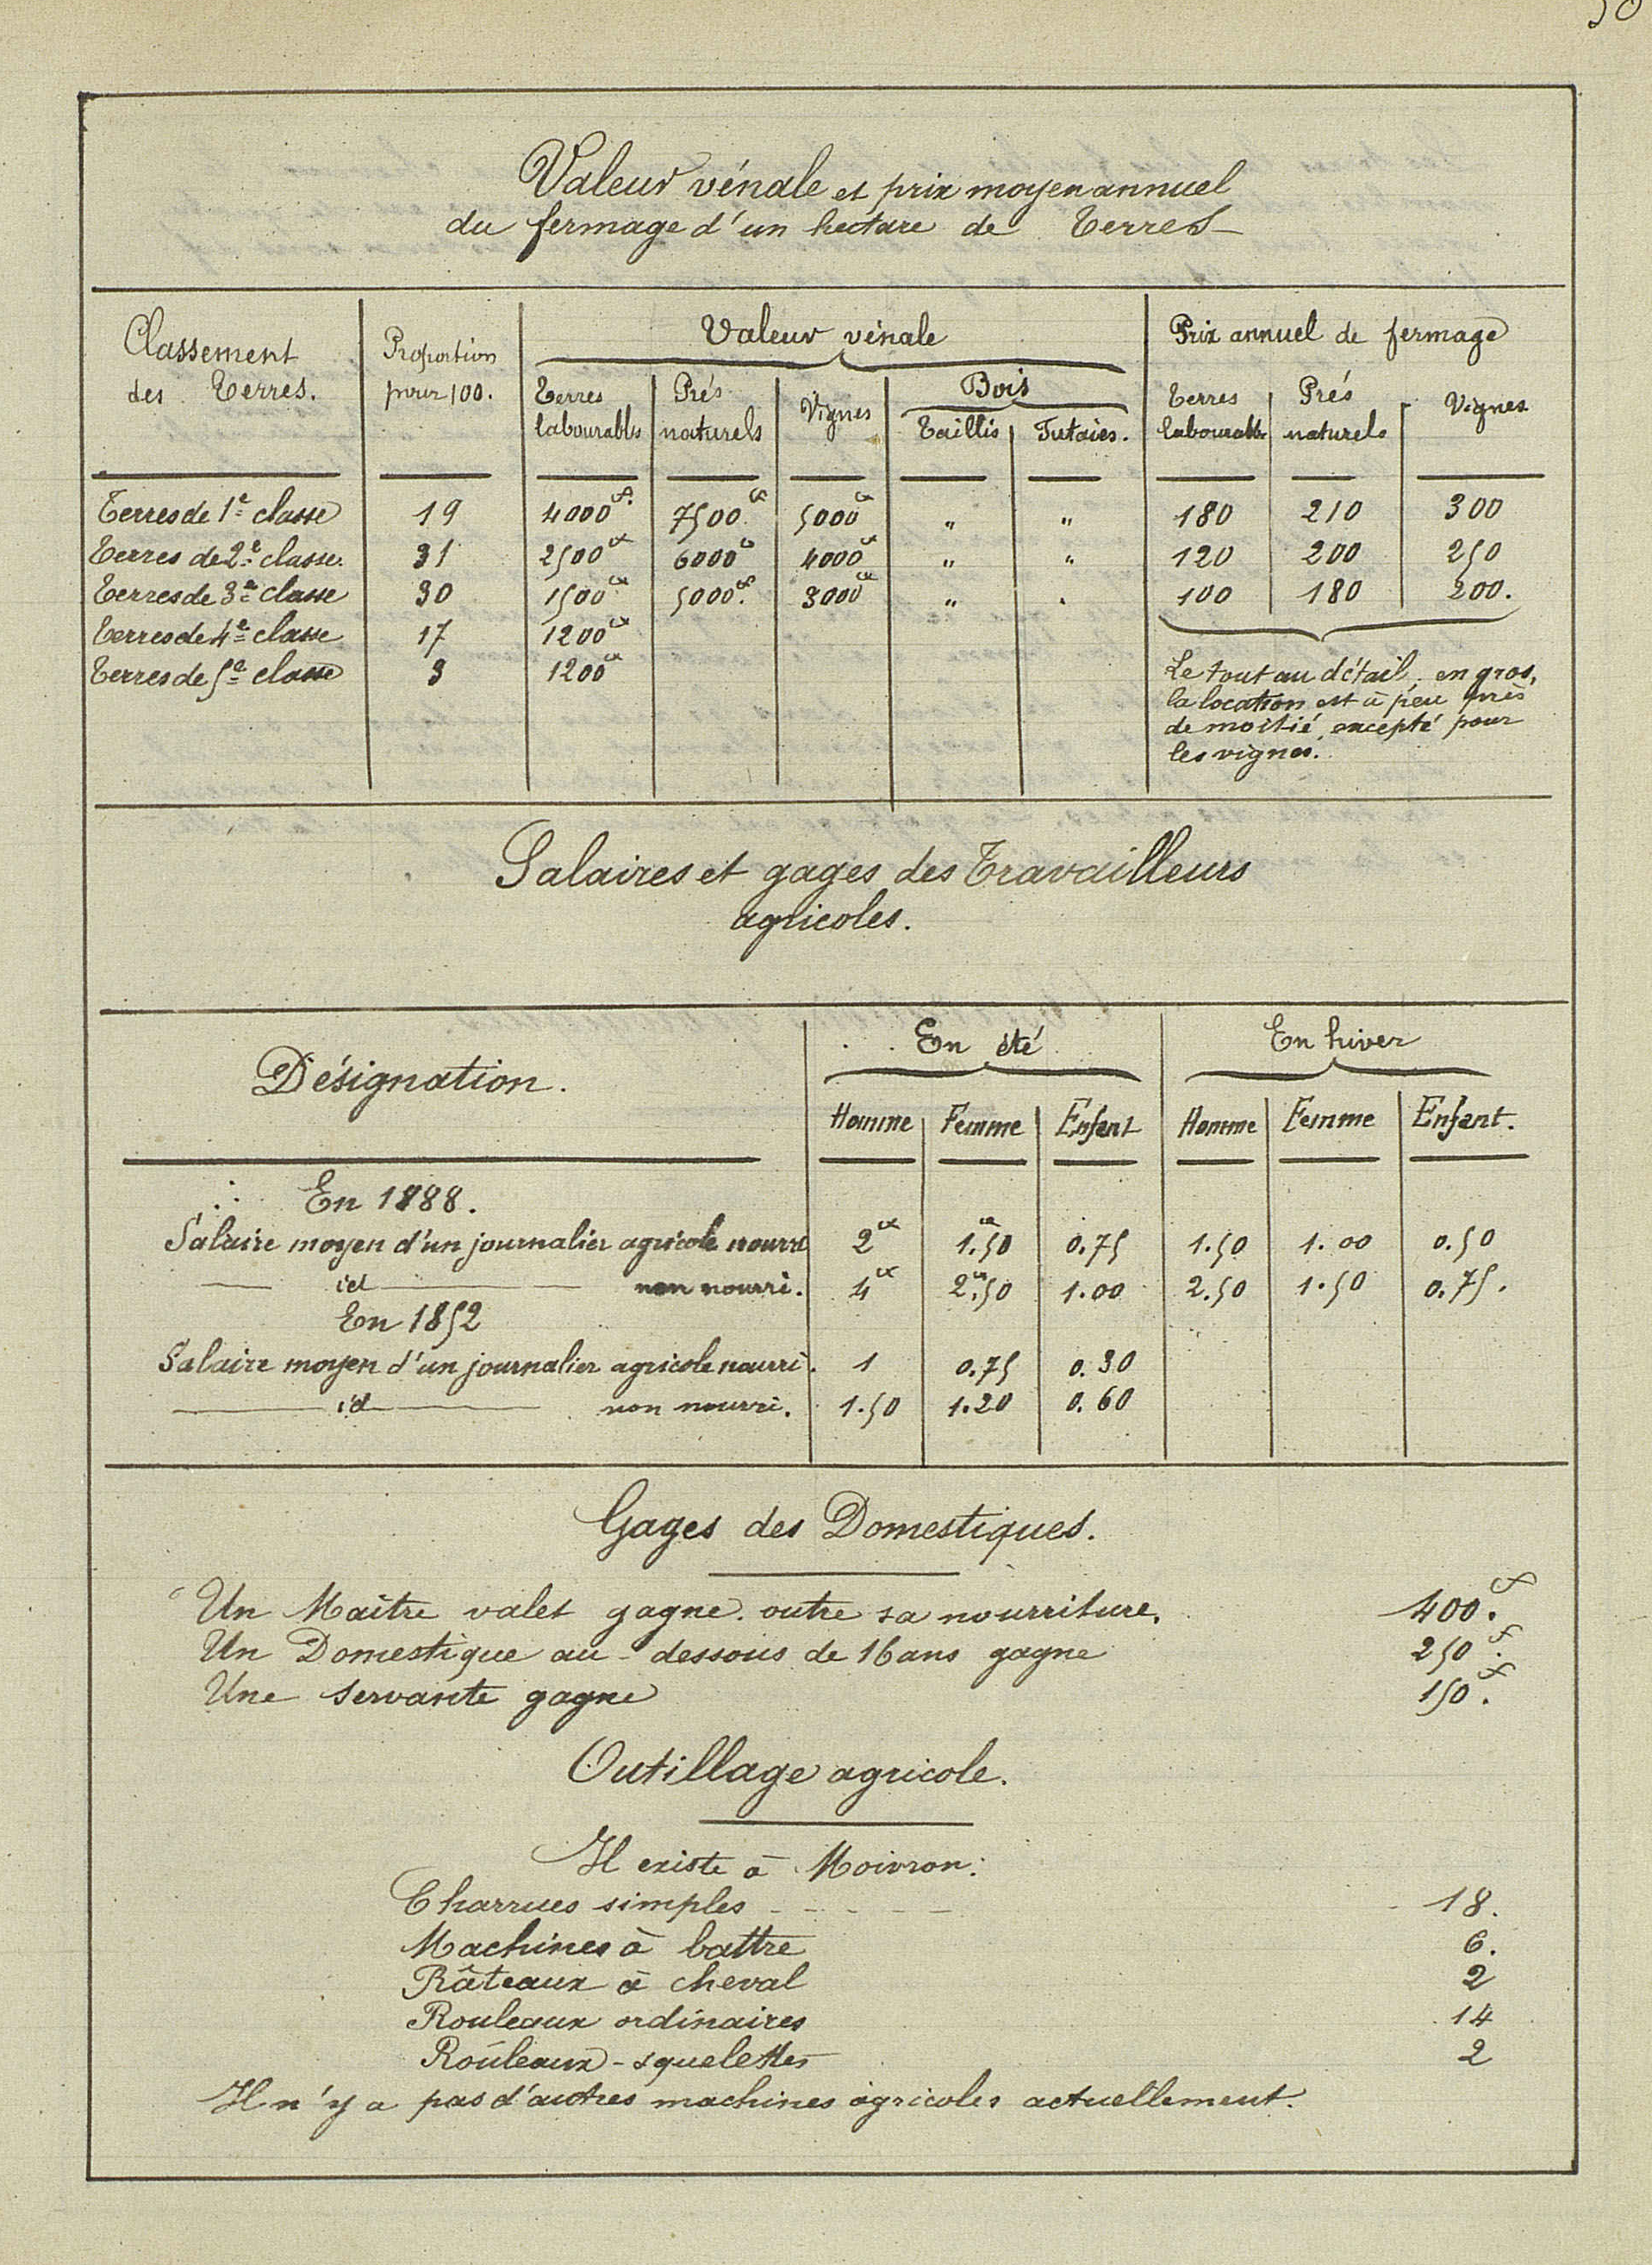 Valeur vénale et prix moyen annuel
du fermage d'un hectare de Terres
Classement des Terres. | Proportion pour 100. | Valeur vénale | Prix annuel de fermage
Terres labourables | Prés naturels | Vignes | Bois | Terres labourables | Prés naturels | Vignes
Taillis | Futaies.
Terres de 1e classe | 19 | 4000f. | 7500f | 5000f | " | " | 180 | 210 | 300
Terres de 2e classe. | 31 | 2500f | 6000f | 4000f | " | " | 120 | 200 | 250
Terres de 3e classe | 30 | 1500f | 5000f. | 3000f | " | " | 100 | 180 | 200.
Terres de 4e classe | 17 | 1200f
Terres de 5e classe | 3 | 1200f
Le tout au détail, en gros,
la location est à peu près
de moitié, excepté pour
les vignes.
Salaires et gages des Travailleurs
agricoles.
Désignation. | En été | En hiver
Homme | Femme | Enfant | Homme | Femme | Enfant.
En 1888.
Salaire moyen d'un journalier agricole nourri | 2f | 1f.50 | 0.75 | 1.50 | 1.00 | 0.50
— id — non nourri. | 4f | 2f.50 | 1.00 | 2.50 | 1.50 | 0.75.
En 1852
Salaire moyen d'un journalier agricole nourri. | 1 | 0.75 | 0.30
— id — non nourri. | 1.50 | 1.20 | 0.60
Gages des Domestiques.
Un Maître valet gagne outre sa nourriture. 400f.
Un Domestique au-dessous de 16 ans gagne 250f.
Une servante gagne 150f.
Outillage agricole.
Il existe à Moivron:
Charrues simples - - - - - 18.
Machines à battre 6.
Râteaux à cheval 2
Rouleaux ordinaires 14
Rouleaux-squelettes 2
Il n'y a pas d'autres machines agricoles actuellement.